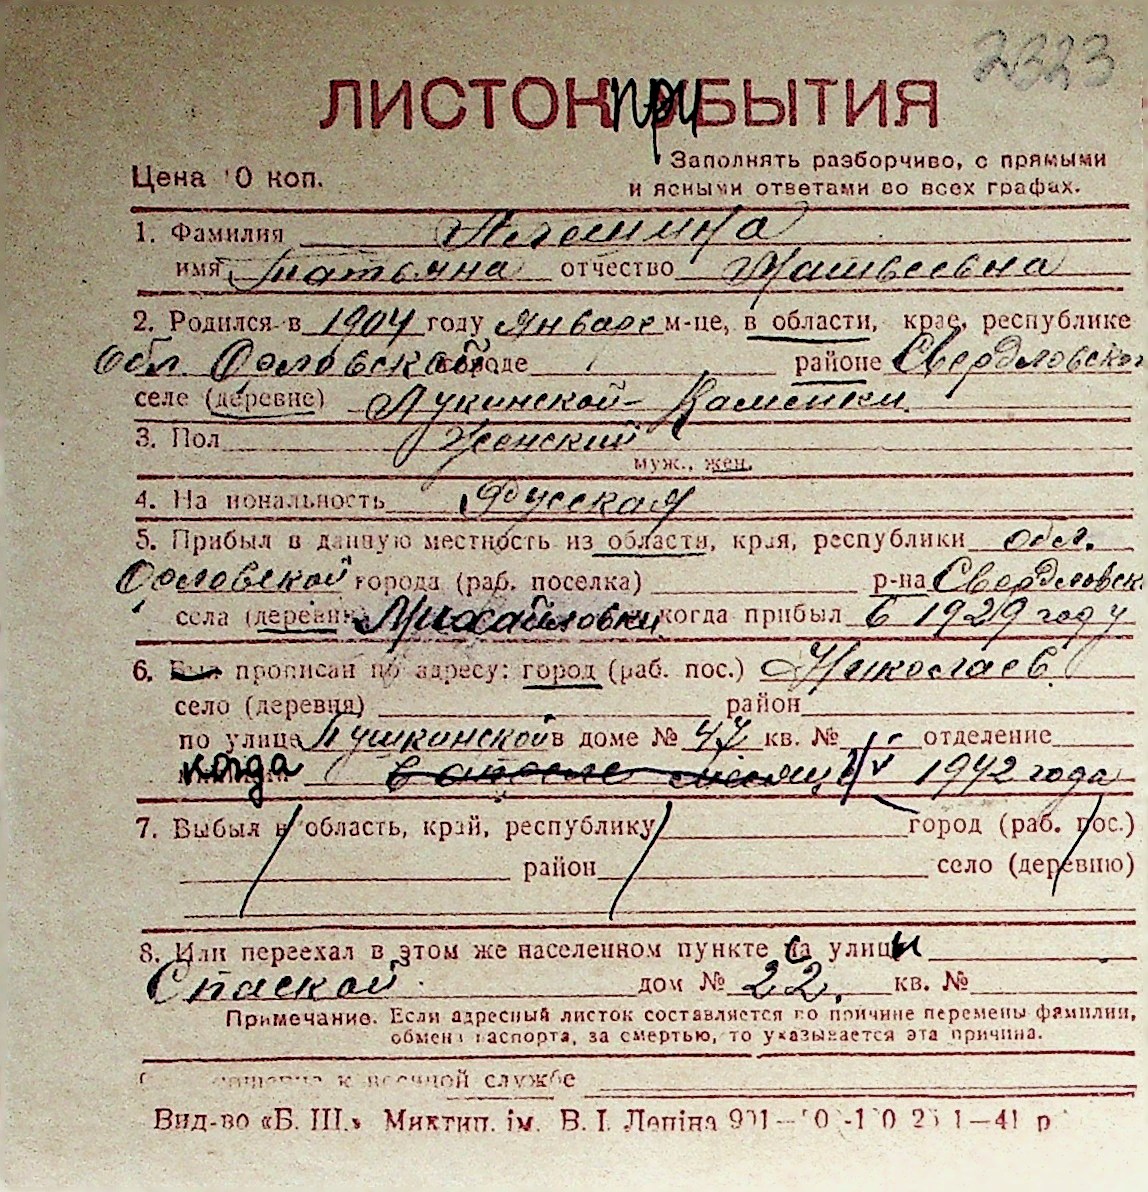 2323
ЛИСТОК при БЫТИЯ
Цена 10 коп.
Заполнять разборчиво, с прямыми
и ясными ответами во всех графах.
1. Фамилия Алёшина
имя Татьяна отчество Матвеевна
2. Родился в 1904 году Январе м-це, в области, крае, республике
обл. Орловской городе районе Свердловском
селе (деревне) Лукинской-Каменки.
3. Пол Женский
муж., жен.
4. Национальность Русская
5. Прибыл в данную местность из области, края, республики обл.
Орловской города (раб. поселка) р-на Свердловск
села (деревни) Михайловки когда прибыл в 1929 году
6. Был прописан по адресу: город (раб. пос.) Николаев.
село (деревня) район
по улице Пушкинской в доме № 47 кв. № отделение
когда в апреле месяце 1942 года
7. Выбыл в область, край, республику город (раб. пос.)
район село (деревню)
8. Или переехал в этом же населенном пункте с улицы
Спаской дом № 22. кв. №
Примечание. Если адресный листок составляется по причине перемены фамилии,
обмена паспорта, за смертью, то указывается эта причина.
к военной службе
Вид-во «Б. Ш.» Миктип. ім. В. І. Леніна